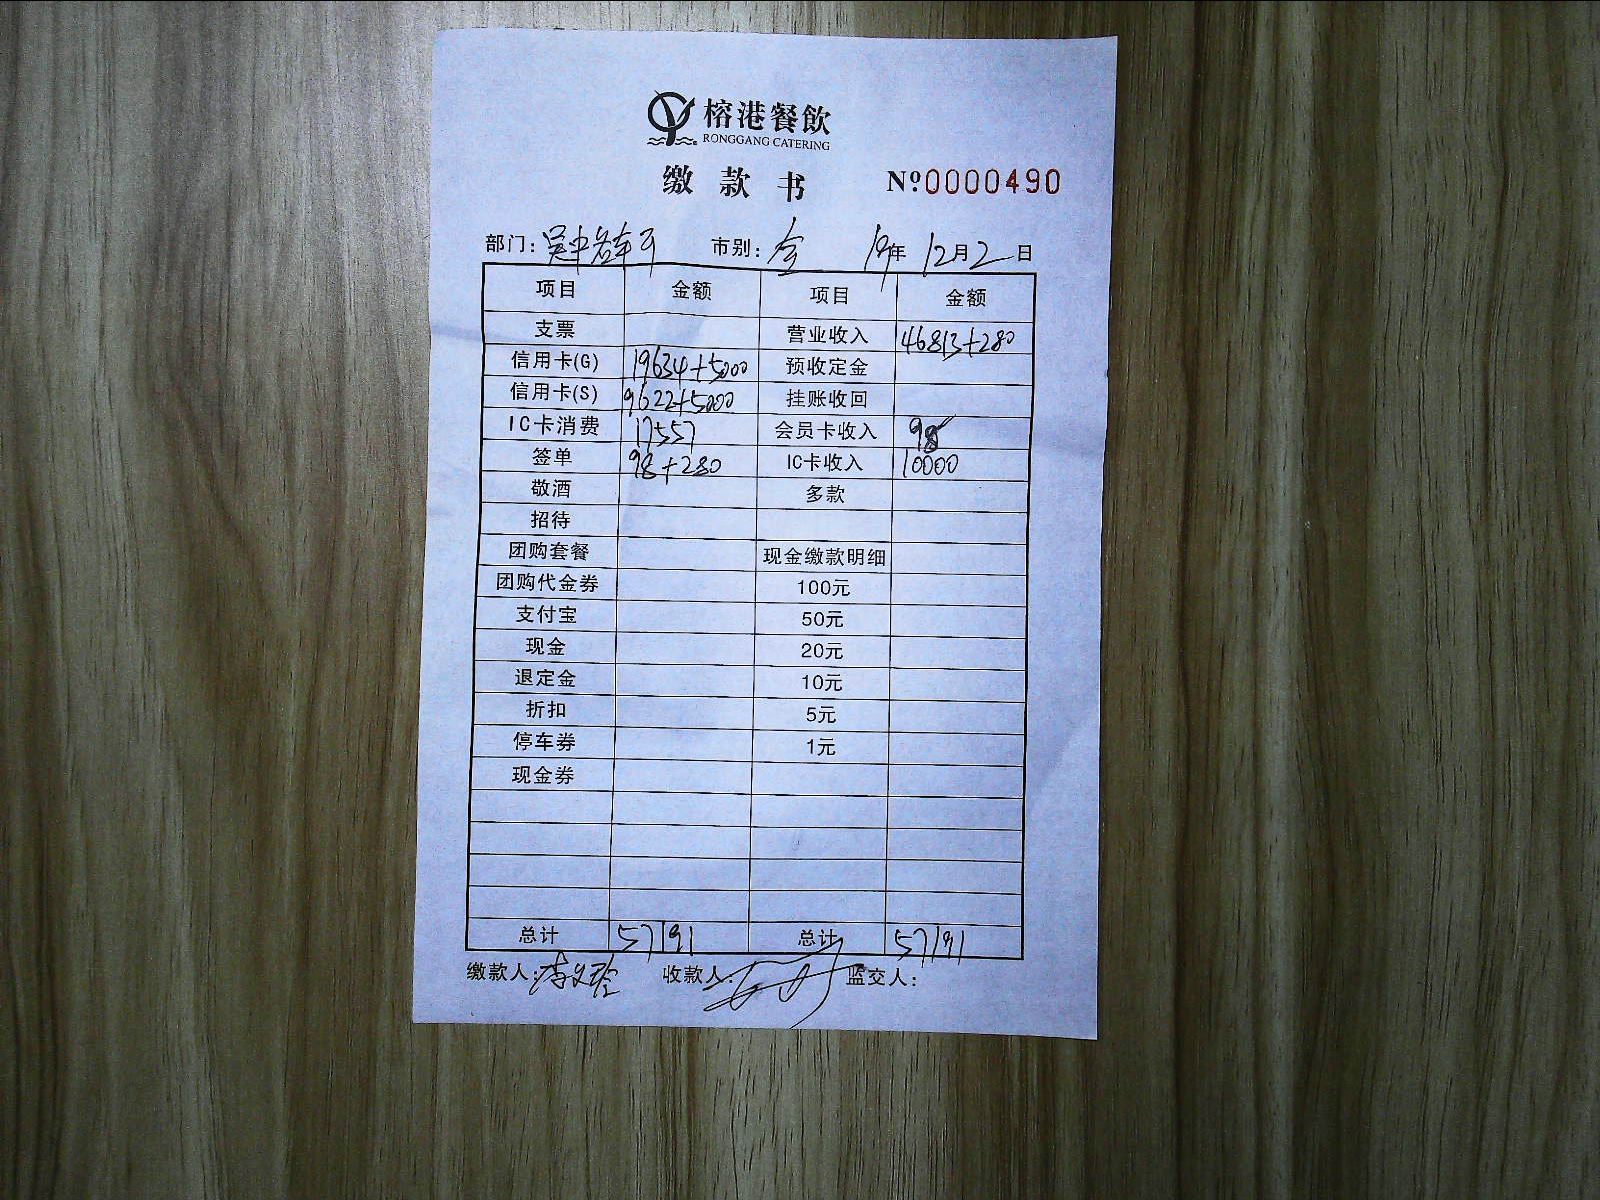 榕港餐飲
RONGGANG CATERING
缴款书 Nº 0000490
部门: 吴中 市别: 全 19年 12月 2日
项目 金额 项目 金额
支票 营业收入 46813+280
信用卡(G) 19634+5000 预收定金
信用卡(S) 9622+5000 挂账收回
IC卡消费 17557 会员卡收入 98
签单 98+280 IC卡收入 10000
敬酒 多款
招待
团购套餐 现金缴款明细
团购代金券 100元
支付宝 50元
现金 20元
退定金 10元
折扣 5元
停车券 1元
现金券
总计 57191 总计 57191
缴款人: 收款人: 监交人: